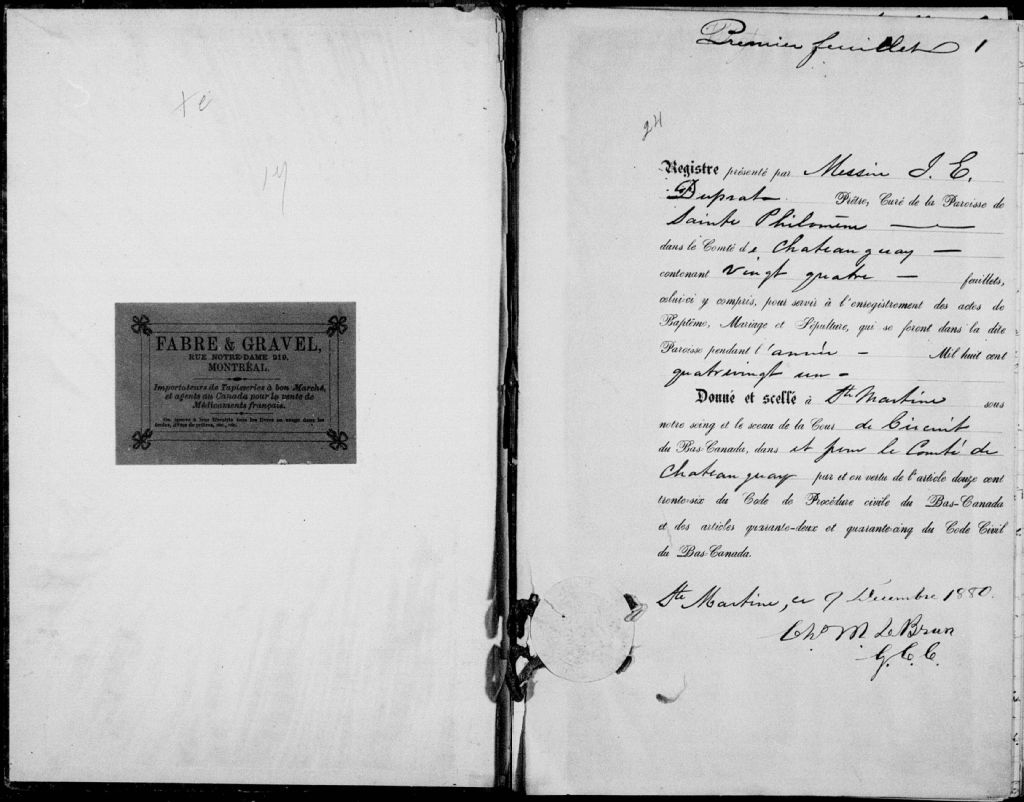 17
FABRE & GRAVEL,
RUE NOTRE-DAME 219,
MONTRÉAL.
Importateurs de Tapisseries à bon Marché,
et agents au Canada pour la vente de
Médicaments français.
Premier feuillet 1
24
Registre présenté par Messire J. E.
Duprat Prêtre, Curé de la Paroisse de
Sainte Philomène —
dans le Comté de Chateauguay —
contenant vingt quatre — feuillets,
celui-ci y compris, pour servir à l'enregistrement des actes de
Baptême, Mariage et Sépulture, qui se feront dans la dite
Paroisse pendant l'année — Mil huit cent
quatrevingt un -
Donné et scellé à Ste Martine sous
notre seing et le sceau de la Cour de Circuit
du Bas-Canada, dans et pour le Comté de
Chateauguay par et en vertu de l'article douze cent
trente-six du Code de Procédure civile du Bas-Canada
et des articles quarante-deux et quarante-cinq du Code Civil
du Bas-Canada.
Ste Martine, ce 9 Décembre 1880.
Chs M. LeBrun
G.C.C.